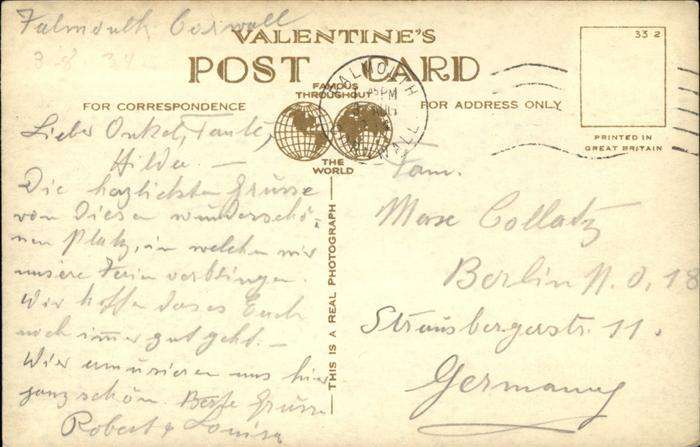 Falmouth Corwall
3.8.34
VALENTINE'S
POST CARD
FAMOUS
THROUGHOUT
THE
WORLD
FOR CORRESPONDENCE
FOR ADDRESS ONLY
33 2
PRINTED IN
GREAT BRITAIN
FALMOUTH
PM
CORNWALL
THIS IS A REAL PHOTOGRAPH
Lieber Onkel, Tante,
Hilde. —
Die herzlichsten Grüsse
von diesen wunderschö-
nen Platz, in welchen wir
unsere Ferien verbringen.
Wir hoffen dases Euch
noch immer gut geht. —
Wir amusieren uns hier
ganz schön. Beste Grüsse
Robert & Louisa
Fam.
Max Collatz
Berlin N.O. 18
Strausbergerstr. 11.
Germany